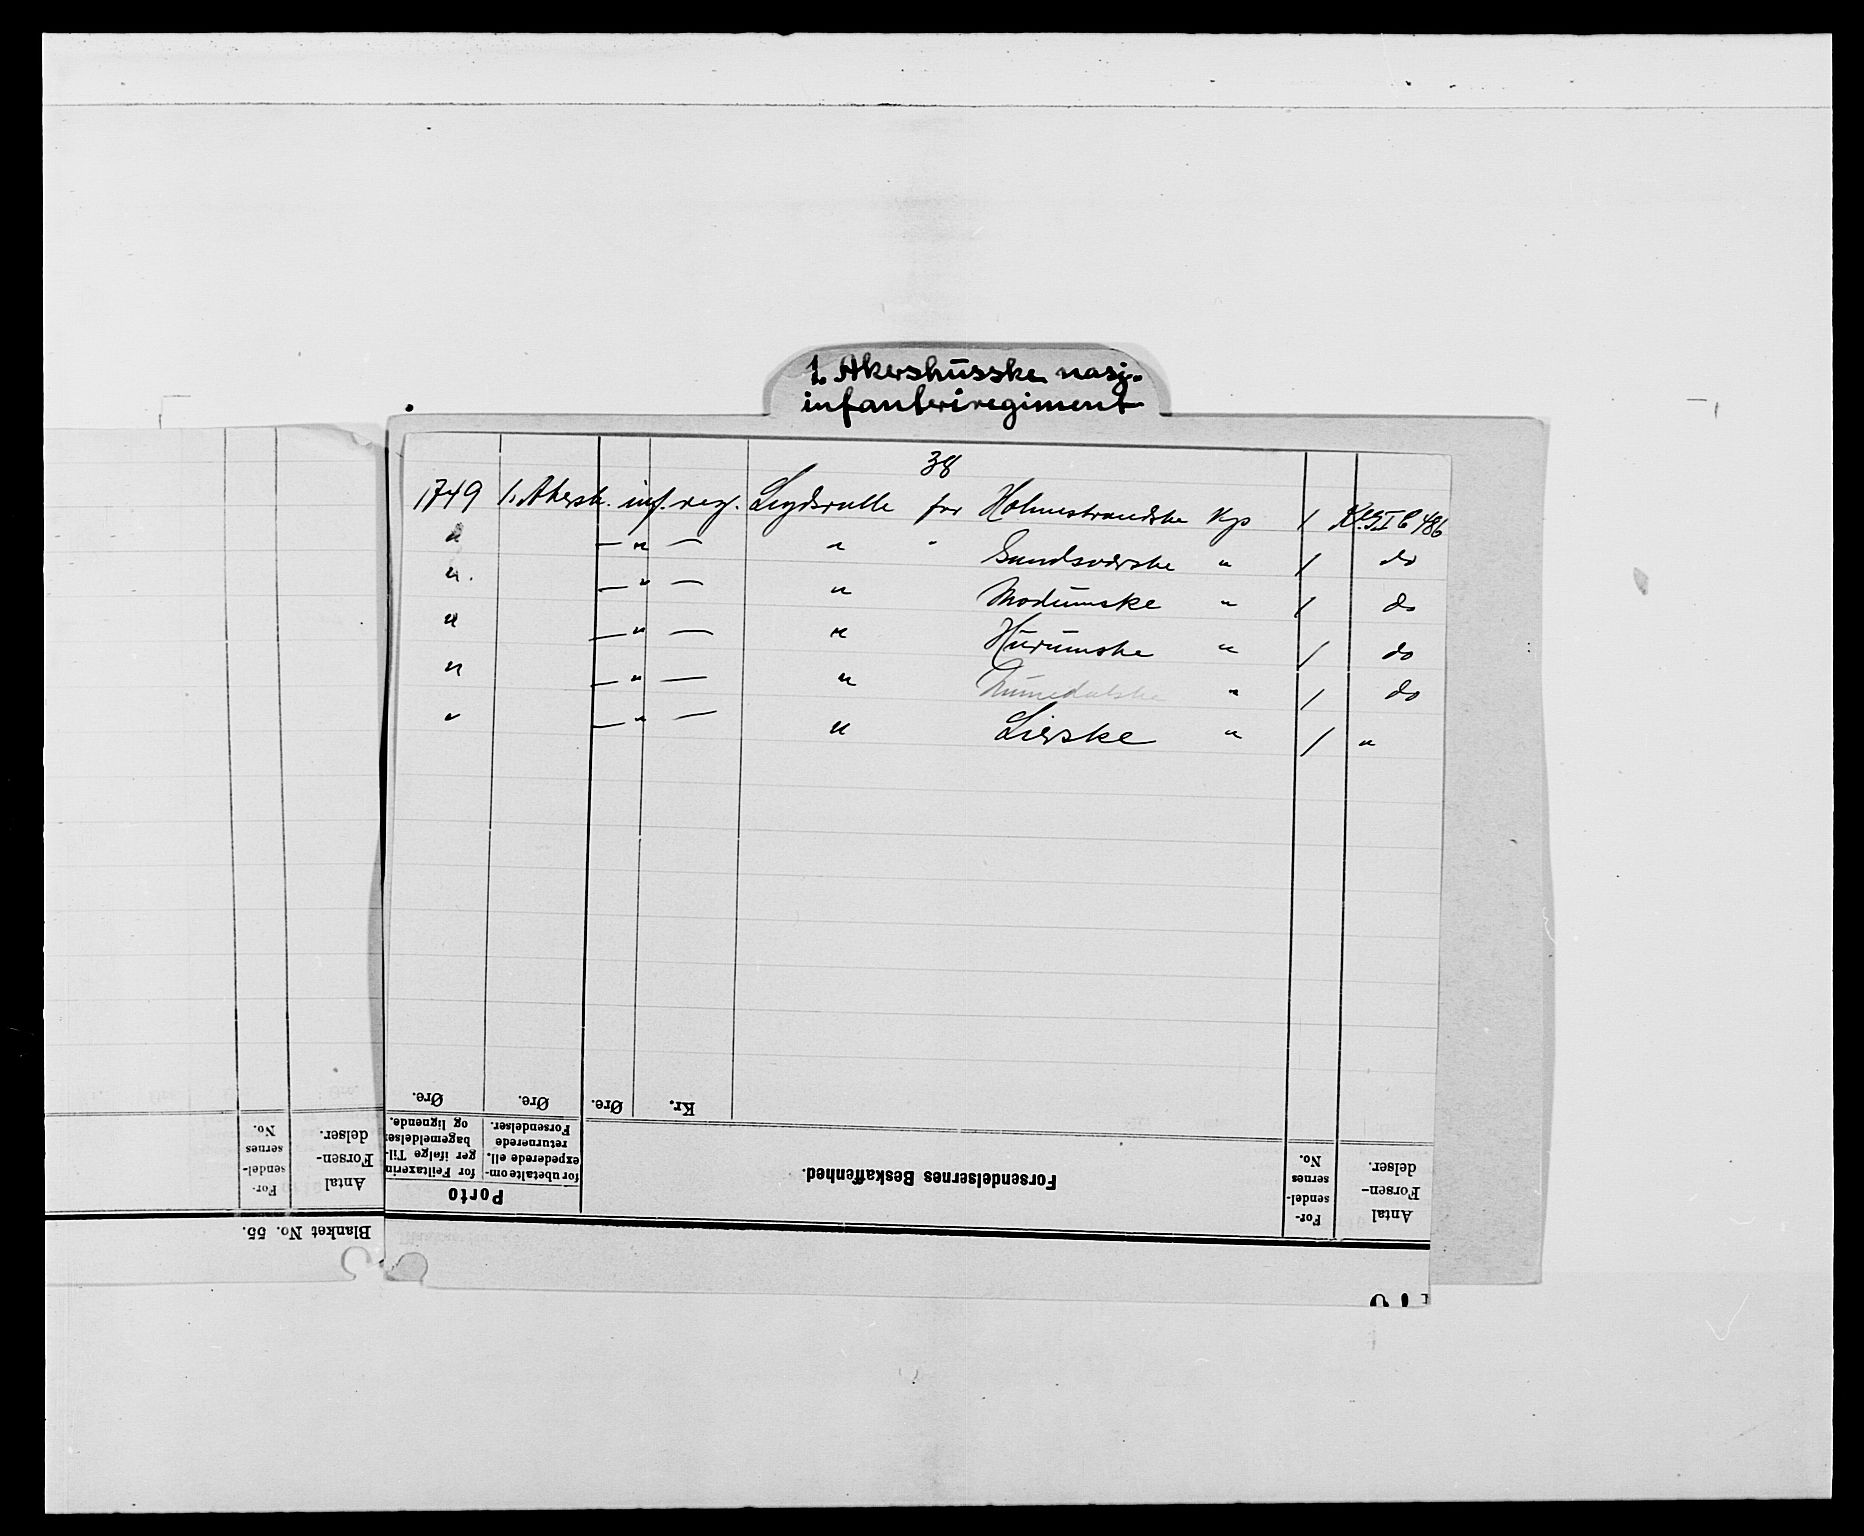 1. Akershusske nasj.
infanteriregiment
38
1749 1. Akersh. inf. reg. Legdsrulle for Holmestrandske Kp 1 Ko. G. I C 486
" — " — " " Sandsværske " 1 do
" — " — " Modumske " 1 do
" — " — " Hurumske " 1 do
" — " — " Numedalske " 1 do
" — " — " Lierske " 1 "
Øre. Øre. Øre. Kr.
Porto
for Feiltaxerin
ger ifølge Til-
bagemeldelse
og lignende.
for ubetalte om-
expederede ell.
returnerede
Forsendelser.
Forsendelsernes Beskaffenhed.
For-
sendel-
sernes
No.
Antal
Forsen-
delser.
Blanket No. 55.
For-
sendel-
sernes
No.
Antal
Forsen-
delser.